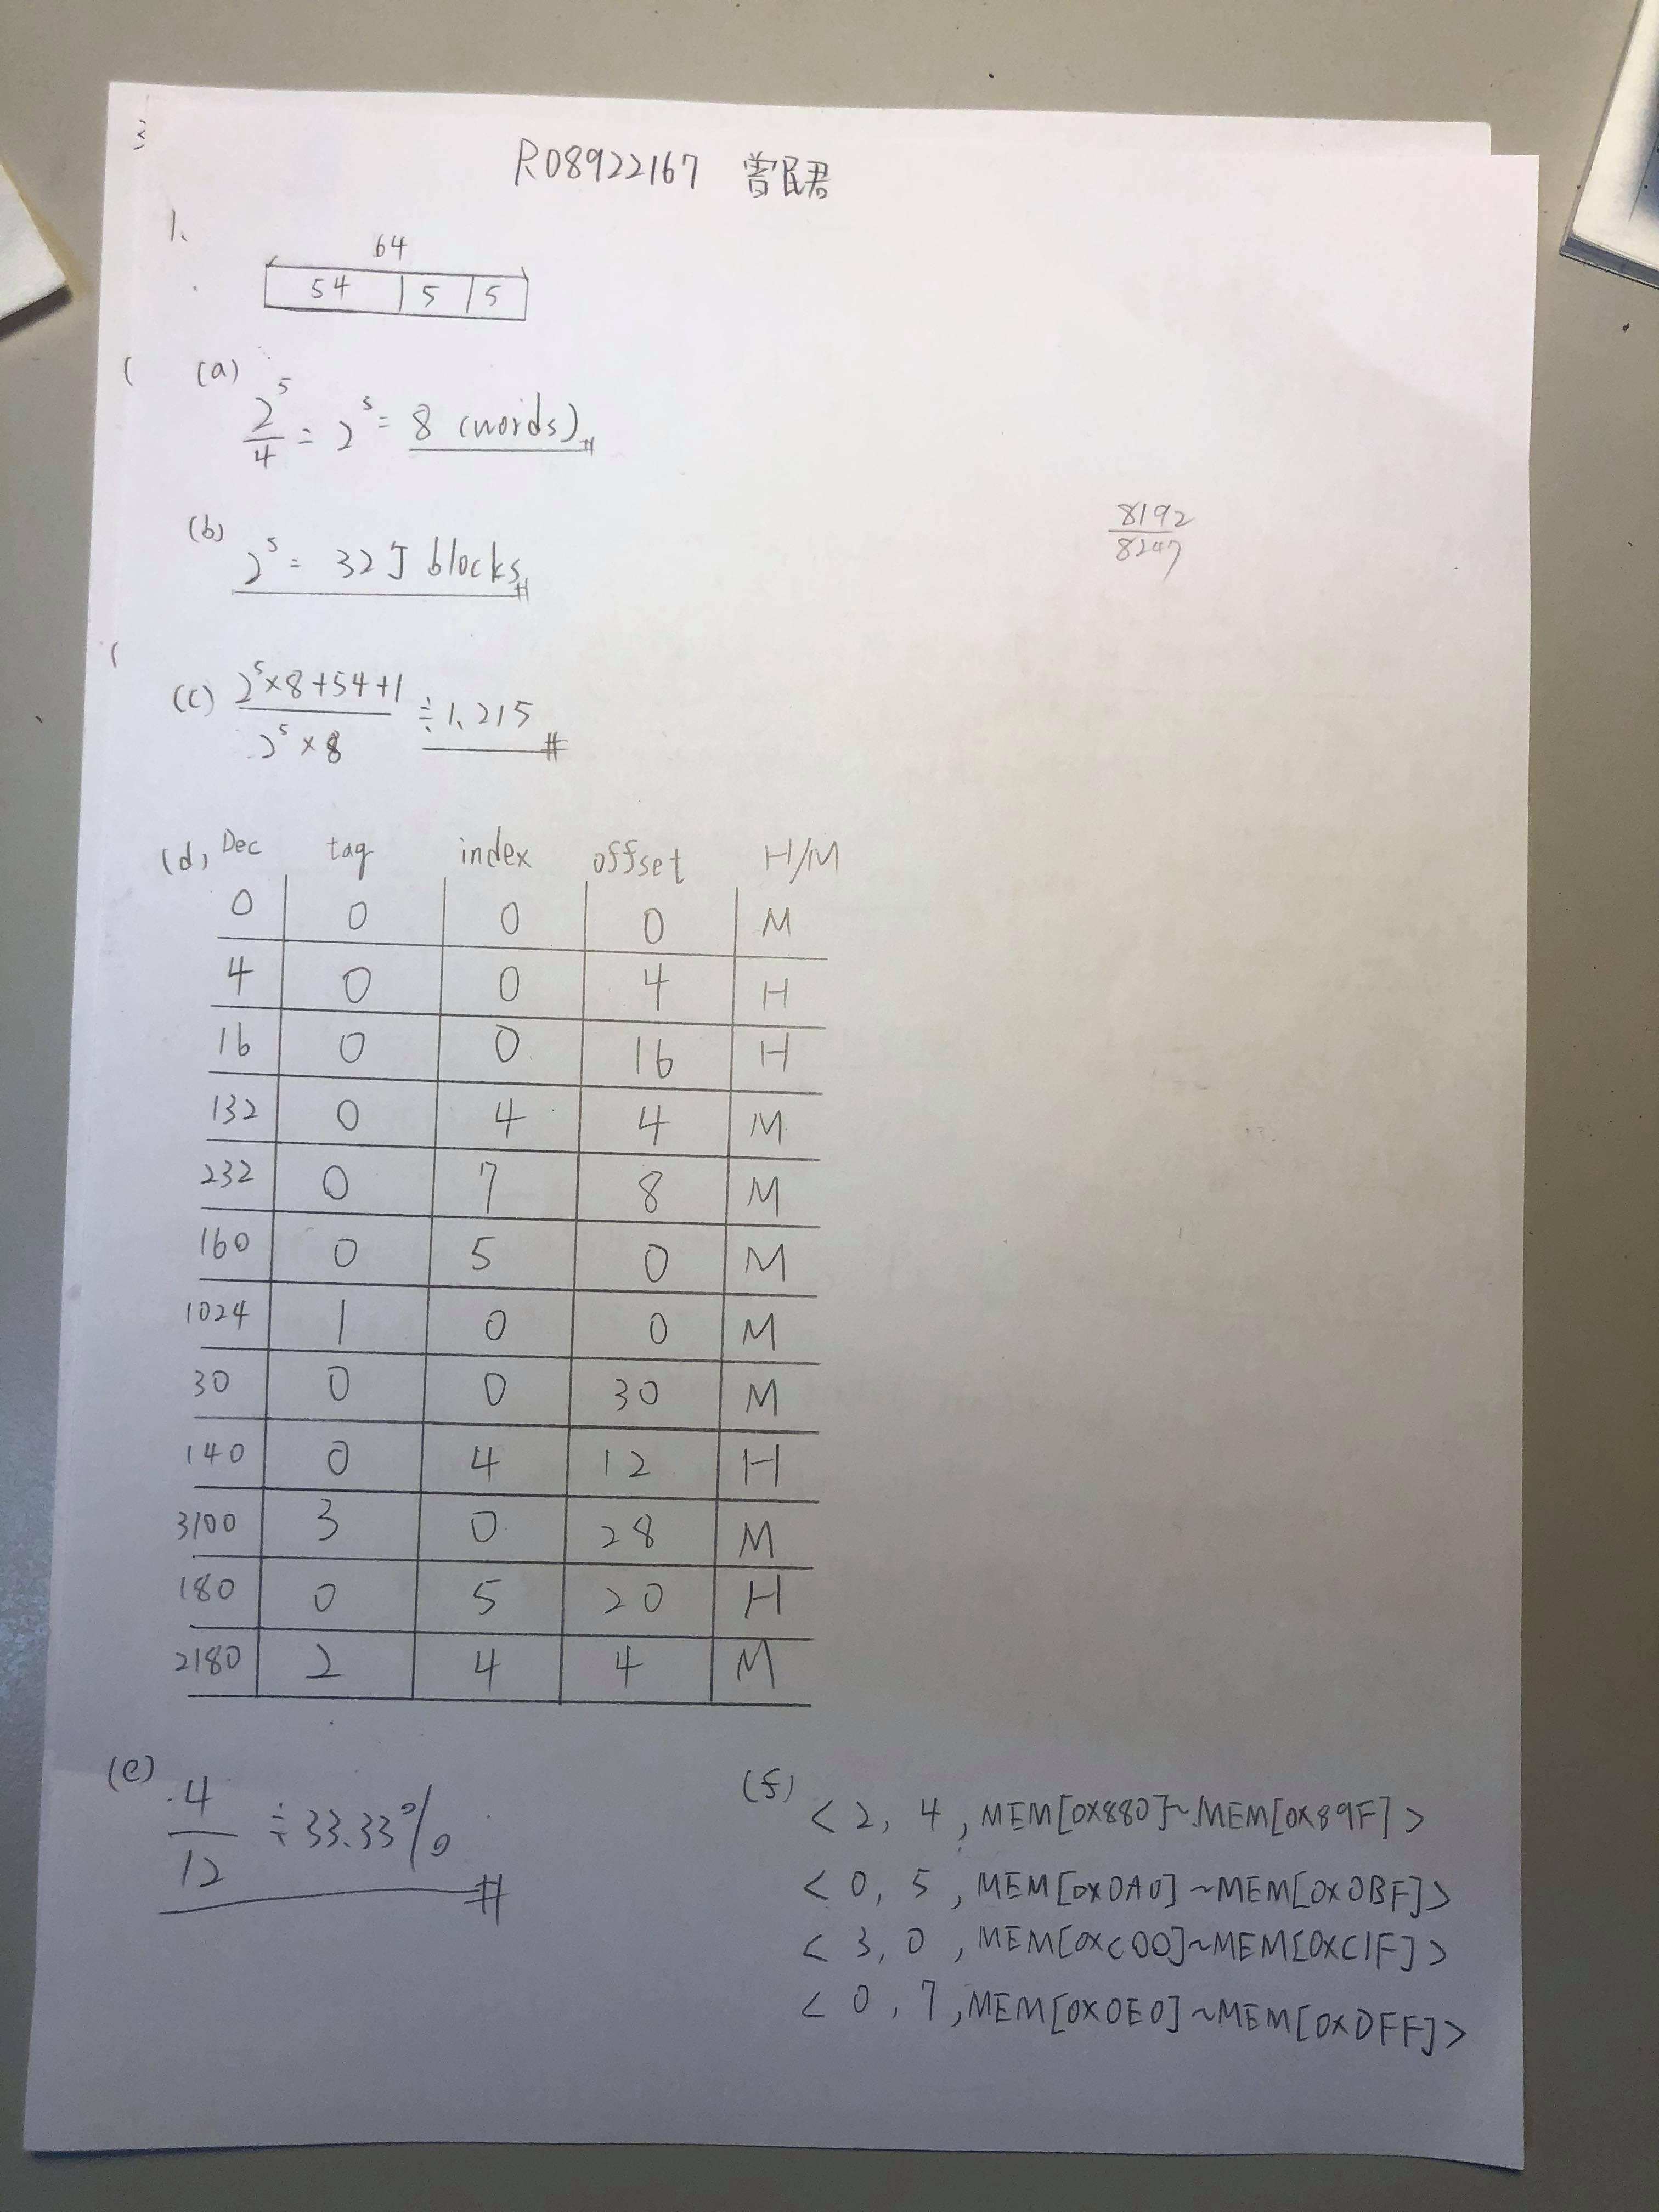 R08922167 曾民君
1、
64
54 5 5
(a) 2^5/4 = 2^3 = 8 (words)#
(b) 2^5 = 32 J blocks#
8192/8247
(c) (2^5×8+54+1)/(2^5×8) ≒ 1.215 #
(d) Dec tag index offset H/M
0 0 0 0 M
4 0 0 4 H
16 0 0 16 H
132 0 4 4 M
232 0 7 8 M
160 0 5 0 M
1024 1 0 0 M
30 0 0 30 M
140 0 4 12 H
3100 3 0 28 M
180 0 5 20 H
2180 2 4 4 M
(e) 4/12 ≒ 33.33% #
(f) < 2, 4, MEM[0x880]~MEM[0x89F] >
< 0, 5, MEM[0x0A0]~MEM[0x0BF] >
< 3, 0, MEM[0xC00]~MEM[0xC1F] >
< 0, 7, MEM[0x0E0]~MEM[0x0FF] >